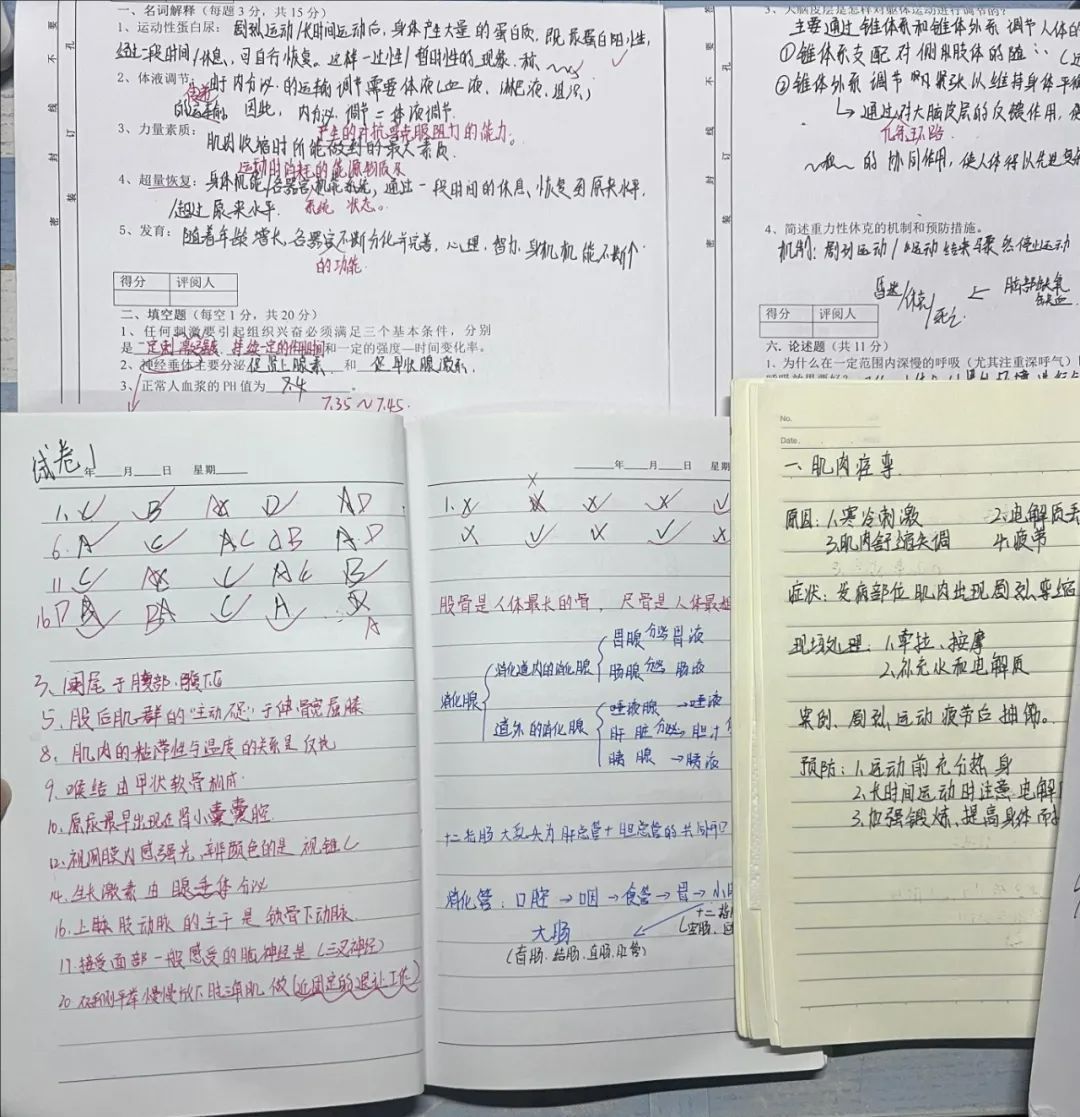 一、名词解释（每题3分，共15分）
1、运动性蛋白尿：剧烈运动/长时间运动后，身体产生大量的蛋白质，既尿蛋白阳性，
经过一段时间休息，可自行恢复。这样一过性/暂时性的现象，称
2、体液调节：内分泌的运输调节需要体液（血液、淋巴液、组织）
的运输 因此，内分泌调节=体液调节
3、力量素质：产生的对抗或克服阻力的能力。
肌肉收缩时所能做到的最大素质
运动时消耗的能源物质及
4、超量恢复：身体机能/各器官机能系统，通过一段时间的休息，恢复到原来水平
/超过原来水平 系统 状态。
5、发育：随着年龄增长，各器官不断分化并完善，心理、智力、身机机能不断
的功能
得分 评阅人
二、填空题（每空1分，共20分）
1、任何刺激要引起组织兴奋必须满足三个基本条件，分别
是一定刺激强度、持续一定的作用时间和一定的强度—时间变化率。
2、神经垂体主要分泌促肾上腺素 和 促甲状腺激素。
3、正常人血浆的PH值为 7.4 。
7.35～7.45
密 封 线 不 要
装 订 孔
3、大脑皮层是怎样对躯体运动进行调节的？
主要通过锥体系和锥体外系调节人体的
①锥体系支配对侧肢体的
②锥体外系调节肌紧张以维持身体平
↳通过对大脑皮层的反馈作用，
的协同作用，使人体得以
4、简述重力性休克的机制和预防措施。
机制：剧烈运动/运动结束 突然停止运动
昏迷/休克/死亡 ← 脑部缺氧
缺血
得分 评阅人
六、论述题（共11分）
1、为什么在一定范围内深慢的呼吸（尤其注重深呼气）
试卷1
年 月 日 星期
1. C B A D A D
6. A C A C B A D
11 C A C A C B
16 D B A C A A
3、阑尾于腹部、腹下区
5、股后肌群的"主动不足"于伸髋屈膝
8、肌肉的粘滞性与温度的关系是反比
9、喉结由甲状软骨构成
10、原尿最早出现在肾小囊囊腔
12、视网膜内感强光，辨颜色的是视锥C
14、生长激素由腺垂体分泌
16、上肢动脉的主干是锁骨下动脉
17、接受面部一般感受的脑神经是（三叉神经）
20、 平举慢慢放下时三角肌做（近固定的退让工作）
年 月 日 星期
股骨是人体最长的骨，尺骨是人体最
消化腺
消化道内的消化腺
胃腺 分泌 胃液
肠腺 分泌 肠液
道外的消化腺
唾液腺 → 唾液
肝脏 分泌 胆汁
胰腺 → 胰液
十二指肠大乳头为肝总管+胆总管的共同开口
消化管：口腔→咽→食管→胃→小肠
大肠
（盲肠、结肠、直肠、肛管）
十二指
（空肠、回
No.
Date.
一、肌肉痉挛
原因：1.寒冷刺激 2.电解质丢
3.肌肉舒缩失调 4.疲劳
症状：发病部位肌肉出现剧烈挛缩
现场处理：1.牵拉、按摩
2.补充水和电解质
案例、剧烈运动疲劳后抽筋。
预防：1.运动前充分热身
2.长时间运动时注意电解
3.加强锻炼、提高身体耐